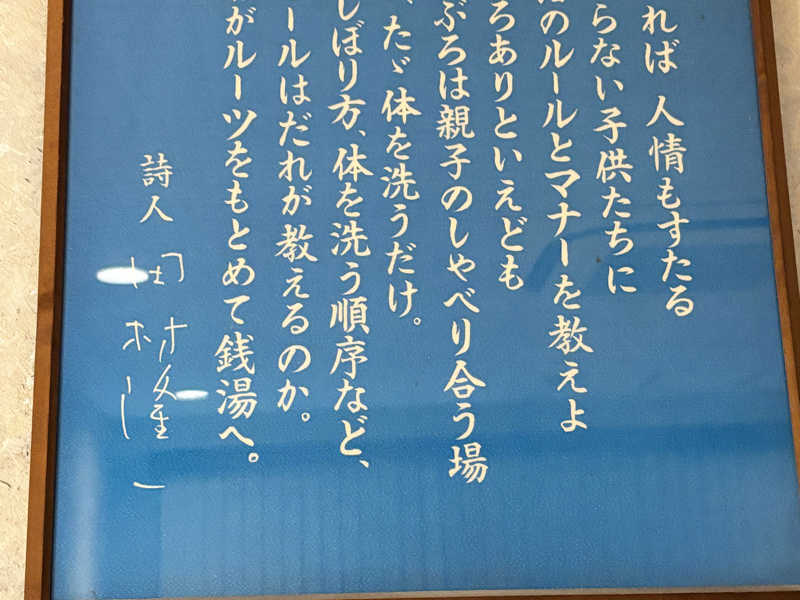 れば 人情もすたる
らない子供たちに
のルールとマナーを教えよ
ろありといえども
ぶろは親子のしゃべり合う場
、たゞ体を洗うだけ。
しぼり方、体を洗う順序など、
ールはだれが教えるのか。
がルーツをもとめて銭湯へ。
詩人 田村隆一